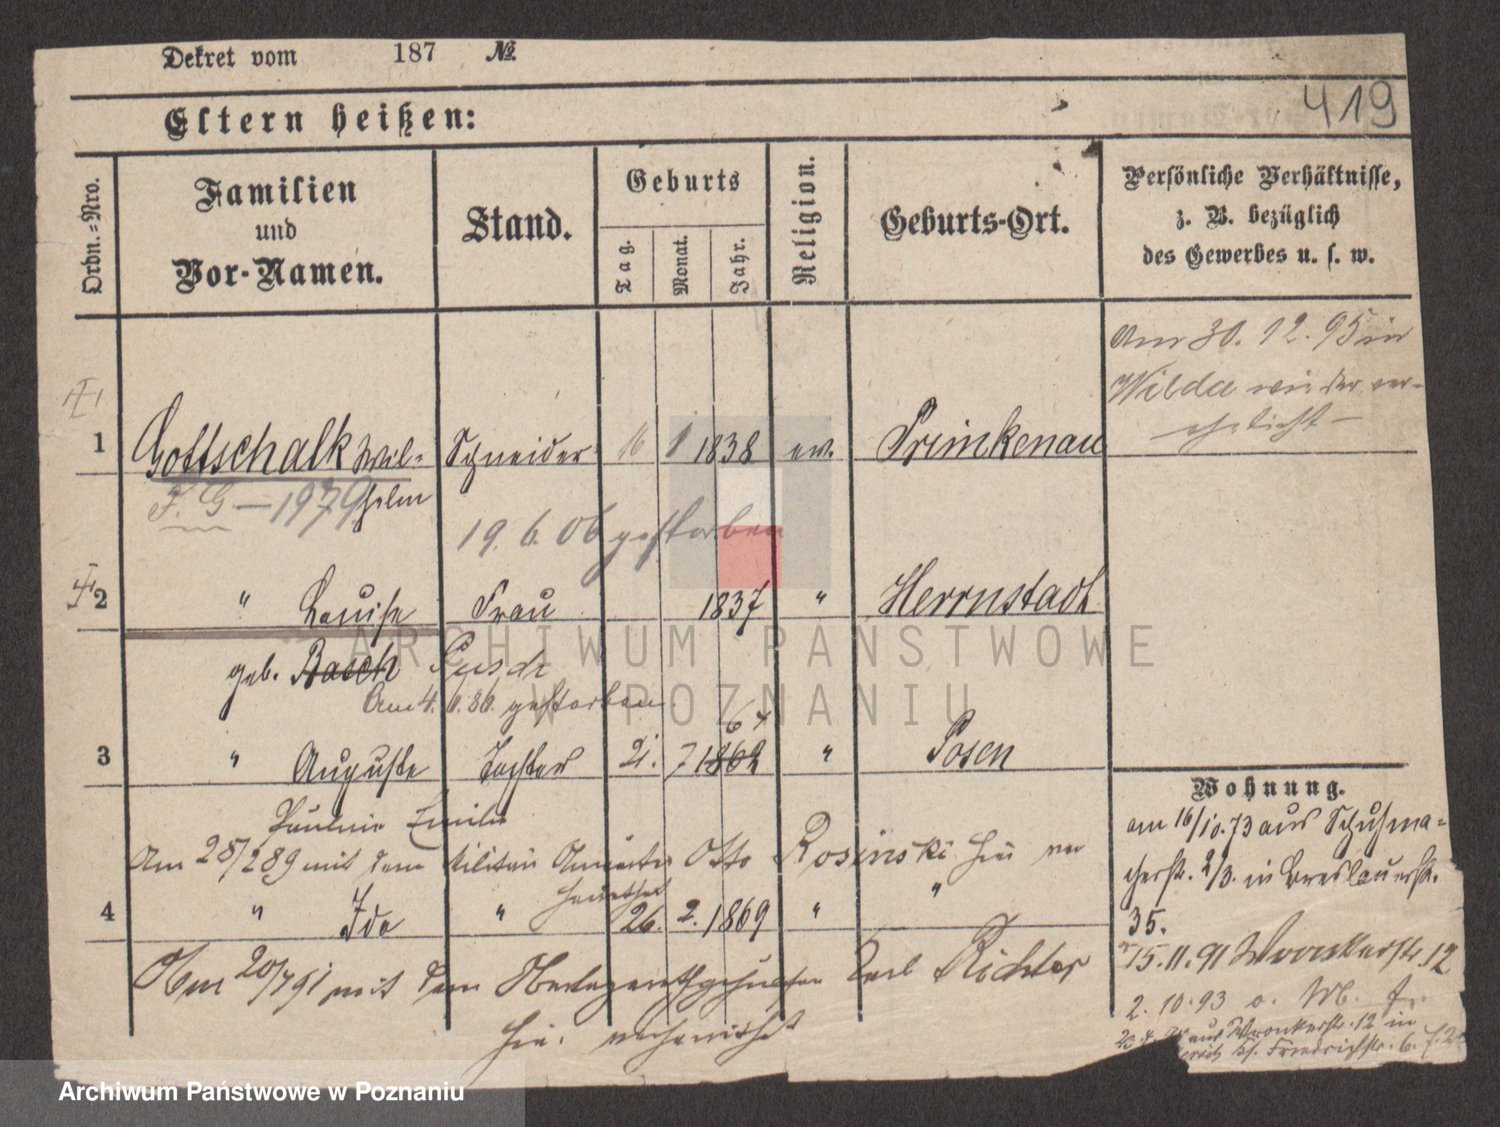 Dekret vom 187 №
419
Eltern heißen:
Ordn.=Nro.
Familien
und
Vor-Namen.
Stand.
Geburts
Tag.
Monat.
Jahr.
Religion.
Geburts-Ort.
Persönliche Verhältnisse,
z. B. bezüglich
des Gewerbes u. s. w.
Am 30. 12. 95 in
Wilda wieder ver-
ehelicht
1 Gottschalk Wil= Schneider 16 1 1838 ev. Primkenau
F. G – 1979 helm
19. 6. 06 gestorben
2 " Louise Frau 1837 " Herrnstadt
geb. Basch
Am 4. 6. 86. gestorben
3 " Auguste Tochter 21. 7 1862 64 " Posen
Pauline Emilie
Am 25/2 89 mit dem Militair Otto Rosinski hier ver
heirathet
4 " Ida " 26. 2. 1869 " "
Am 20/7 91 mit dem Oberlazarethgehülfen Carl Richter
hier verheirathet
Wohnung.
am 16/10. 73 aus Schuhma=
cherstr. 2/3. in Breslauerstr.
35.
15. 11. 91 Wronkerstr. 12
2. 10. 93 o. M. f.
aus Wronkerstr. 12 in
Friedrichstr. 6.
ARCHIWUM PAŃSTWOWE
W POZNANIU
Archiwum Państwowe w Poznaniu